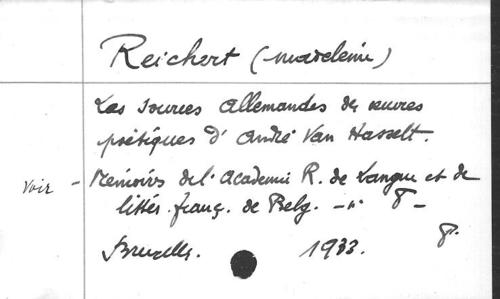 Reichert (Madeleine)
Les sources allemandes des œuvres
poétiques d'André Van Hasselt.
voir - Mémoires de l'Academie R. de Langue et de
littér. franç. de Belg. -
Bruxelles. 1933. 8.